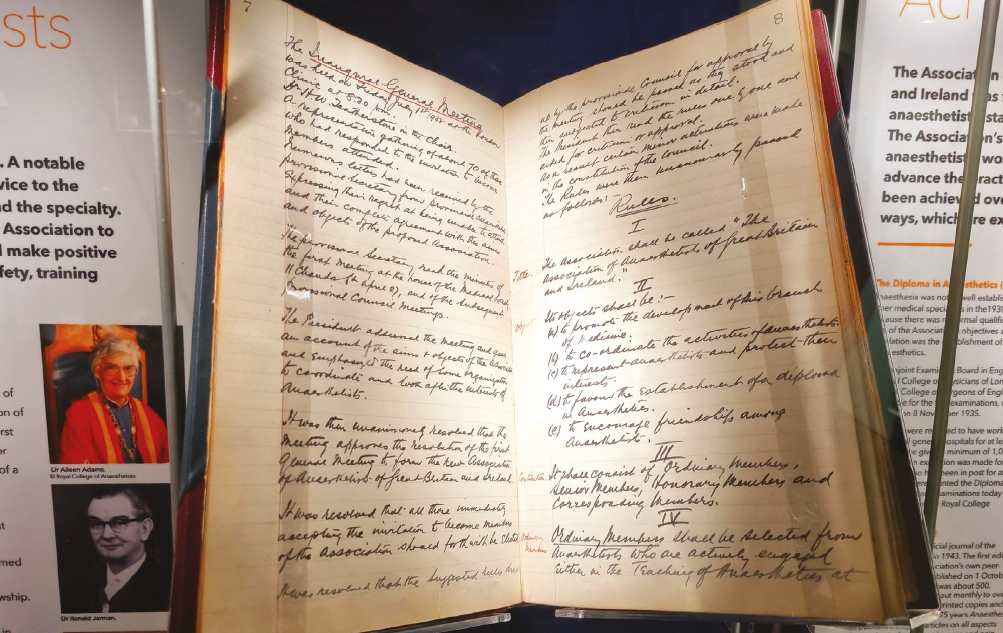 sts
. A notable
vice to the
d the specialty.
Association to
d make positive
fety, training
of
on of
irst
er
of a
nt
rmed
wship.
in
Dr Aileen Adams.
© Royal College of Anaesthetists
Dr Ronald Jarman.
7
The Inaugural General Meeting
was held on Friday July 1st 1932 at the London
Clinic at 5.30 p.m.
Dr H.W. Featherstone in the Chair.
A representative gathering of about 70 of those
who had responded to the invitation to become
members attended.
Numerous letters had been received by the
provisional Secretary from prominent members
expressing their regret at being unable to attend
and their complete agreement with the aims
and objects of the proposed Association.
The provisional Secretary read the minutes of
the first Meeting at the house of the Medical Society,
11 Chandos St. and of the subsequent
Provisional Council Meetings.
The President addressed the meeting and gave
an account of the aims & objects of the Association
and emphasised the need of some organisation
to coordinate and look after the interests of
Anaesthetists.
It was then unanimously resolved that the
Meeting approves the resolution of the first
General Meeting to form the new Association
of Anaesthetists of Great Britain and Ireland
It was resolved that all those immediately
accepting the invitation to become members
of the Association should forthwith be elected
It was resolved that the suggested rules
8
up by the provisional Council for approval by
the meeting should be passed as they stood and
then subjected to criticism in detail.
The President then read the rules one by one and
asked for criticism or approval.
As a result certain minor alterations were made
in the constitution of the Council.
The Rules were then unanimously passed
as follows:
Rules.
I
Title.
The association shall be called "The
Association of Anaesthetists of Great Britain
and Ireland."
II
Objects
Its objects shall be:-
(a) to promote the development of this branch
of Medicine.
(b) to co-ordinate the activities of anaesthetists.
(c) to represent anaesthetists and protect their
interests.
(d) to favour the establishment of a diploma
in Anaesthetics.
(e) to encourage friendship among
Anaesthetists.
III
It shall consist of Ordinary Members,
Senior Members, Honorary Members and
Corresponding Members.
IV
Ordinary
Members
Ordinary Members shall be selected from
Anaesthetists who are actively engaged
either in the Teaching of Anaesthetics at
The Association
and Ireland was
anaesthetist sta
The Association's
anaesthetist wo
advance the pract
been achieved ove
ways, which are ex
The Diploma in Anaesthetics (
naesthesia was not well establis
her medical specialties in the 1930
ause there was no formal qualific
of the Association's objectives a
lation was the establishment of
esthetics.
onjoint Examin Board in Eng
l College of Physicians of Lon
College of Surgeons of Engl
le for the examinations,
on 8 November 1935.
were required to have work
general hospitals for at le
give minimum of 1,0
exemption was made fo
been in post for at
granted the Diploma
aminations today
Royal College
icial journal of the
in 1943. The first edi
ciation's own peer-
blished on 1 Octob
was about 500.
out monthly to ove
printed copies and
75 years Anaesthe
articles on all aspects